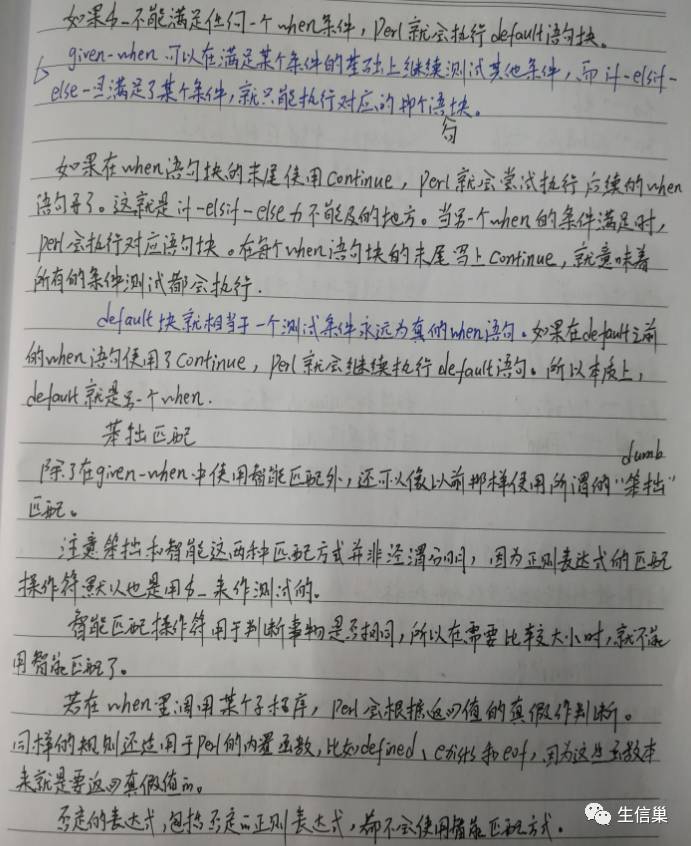 如果$_不能满足任何一个when条件，Perl就会执行default语句块。
given-when 可以在满足某个条件的基础上继续测试其他条件，而if-elsif-
else一旦满足了某个条件，就只能执行对应的那个语块。
句
如果在when语句块的末尾使用continue，Perl就会尝试执行后续的when
语句了。这就是if-elsif-else力不能及的地方。当另一个when的条件满足时，
Perl会执行对应语句块。在每个when语句块的末尾写上continue，就意味着
所有的条件测试都会执行.
default块就相当于一个测试条件永远为真的when语句。如果在default之前
的when语句使用了continue，Perl就会继续执行default语句。所以本质上，
default就是另一个when.
笨拙匹配
dumb
除了在given-when中使用智能匹配外，还可以像以前那样使用所谓的“笨拙”
匹配。
注意笨拙和智能这两种匹配方式并非泾渭分明，因为正则表达式的匹配
操作符默认也是用$_来作测试的。
智能匹配操作符用于判断事物是否相同，所以在需要比较大小时，就不能
用智能匹配了。
若在when里调用某个子程序，Perl会根据返回值的真假作判断。
同样的规则还适用于Perl的内置函数，比如defined、exists和eof，因为这些函数本
来就是要返回真假值的。
否定的表达式，包括否定的正则表达式，都不会使用智能匹配方式。
生信巢